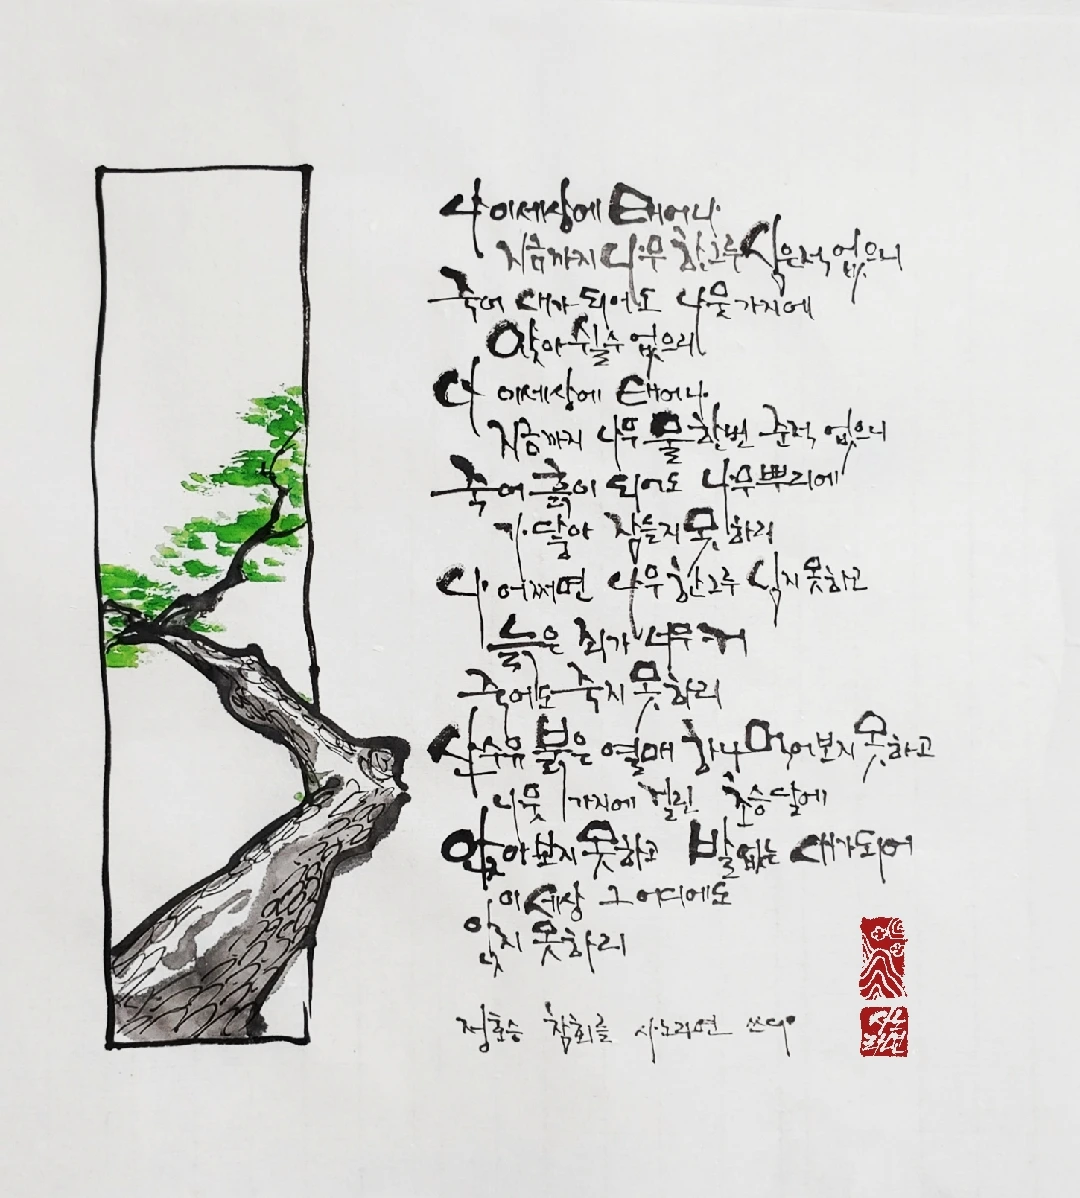 나 이세상에 태어나
지금까지 나무 한그루 심은적 없으니
죽어 새가 되어도 나뭇가지에
앉아 쉴수 없으리
나 이세상에 태어나
지금까지 나무 물 한번 준적 없으니
죽어 흙이 되어도 나무뿌리에
가 닿아 잠들지 못하리
나 어쩌면 나무 한그루 심지 못하고
늙은 죄가 너무 커
죽어도 죽지 못하리
산수유 붉은 열매 하나 먹어보지 못하고
나뭇가지에 걸린 초승달에
앉아보지 못하고 발 없는 새가되어
이 세상 그 어디에도
앉지 못하리
정호승 참회를 사노라면 쓰다